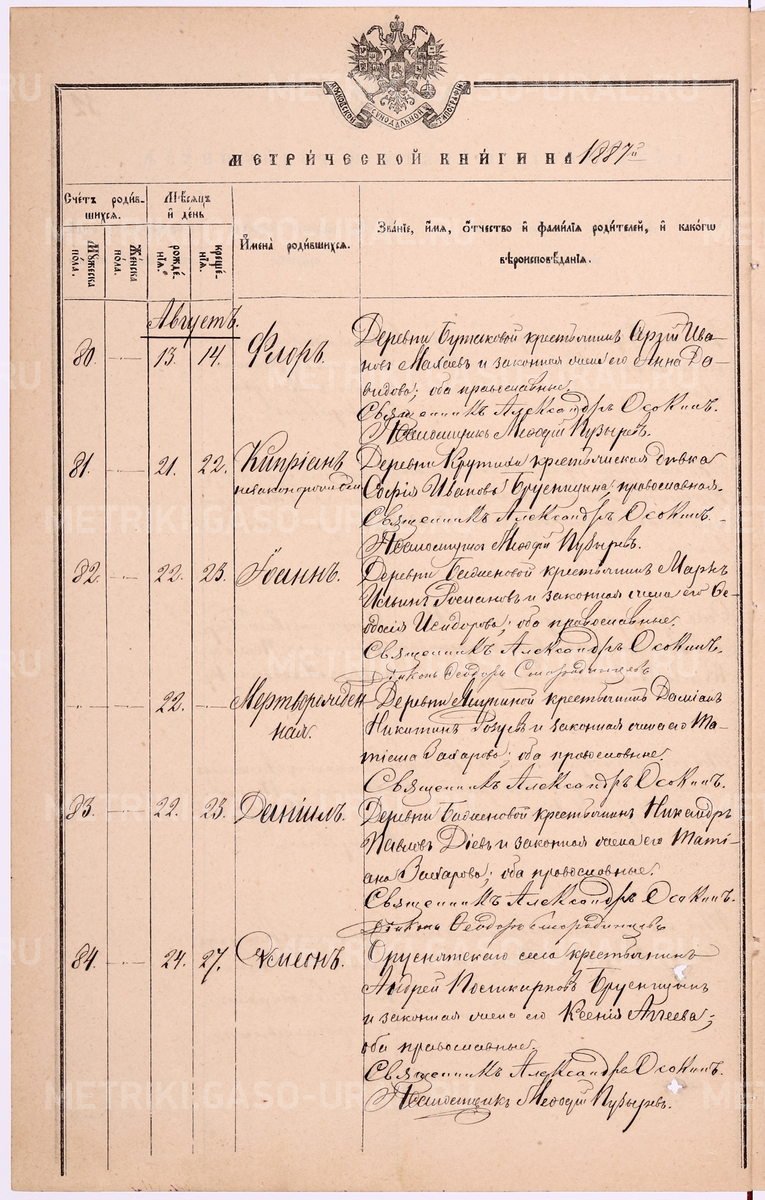 МОСКОВСКОЙ СѴНОДАЛЬНОЙ ТИПОГРАФІИ
МЕТРИ́ЧЕСКОЙ КНИ́ГИ НА 1887 й
Сче́тъ роди́в-
шихся.
Мѣ́сяцъ
и̂ день
И̂мена̀ роди́вшихся.
Зва́нїе, и̂́мя, ѻ̂́тчество и̂ фамилїя роди́телей, и̂ како́гѡ
вѣроисповѣ́данїя.
Мꙋ́жеска по́ла.
Же́нска по́ла.
рожде́-нїя.
креще́-нїя.
Августъ.
80. 13. 14. Флоръ. Деревни крестьянинъ Сергій Ива-
новъ Махаевъ и законная жена его Анна Да-
видова; оба православные.
Священникъ Александръ Осокинъ.
Псаломщикъ Меѳодій Пузыревъ.
81. 21. 22. Кипріанъ Деревни Крутиха крестьянская дѣвка
незаконнорожден Софія Иванова Брусницына православная.
Священникъ Александръ Осокинъ.
Псаломщикъ Меѳодій Пузыревъ.
82. 22. 23. Іоаннъ. Деревни крестьянинъ Маркъ
Ильинъ Романовъ и законная жена его Ѳе-
одосія Исидорова; оба православные.
Священникъ Александръ Осокинъ.
Діаконъ Ѳеодоръ Смородинцевъ
22. Мертворожден Деревни крестьянинъ Даміанъ
ная. Никитинъ и законная жена его Та-
тіана Захарова; оба православные.
Священникъ Александръ Осокинъ.
83. 22. 23. Даніилъ. Деревни крестьянинъ Никандръ
Павловъ Діевъ и законная жена его Таті-
ана Захарова; оба православные.
Священникъ Александръ Осокинъ.
Діаконъ Ѳеодоръ Смородинцевъ
84. 24. 27. Симеонъ. Бруснятскаго села крестьянинъ
Андрей Поликарповъ Брусницынъ
и законная жена его Ксенія Аггеева;
оба православные.
Священникъ Александръ Осокинъ.
Псаломщикъ Меѳодій Пузыревъ.